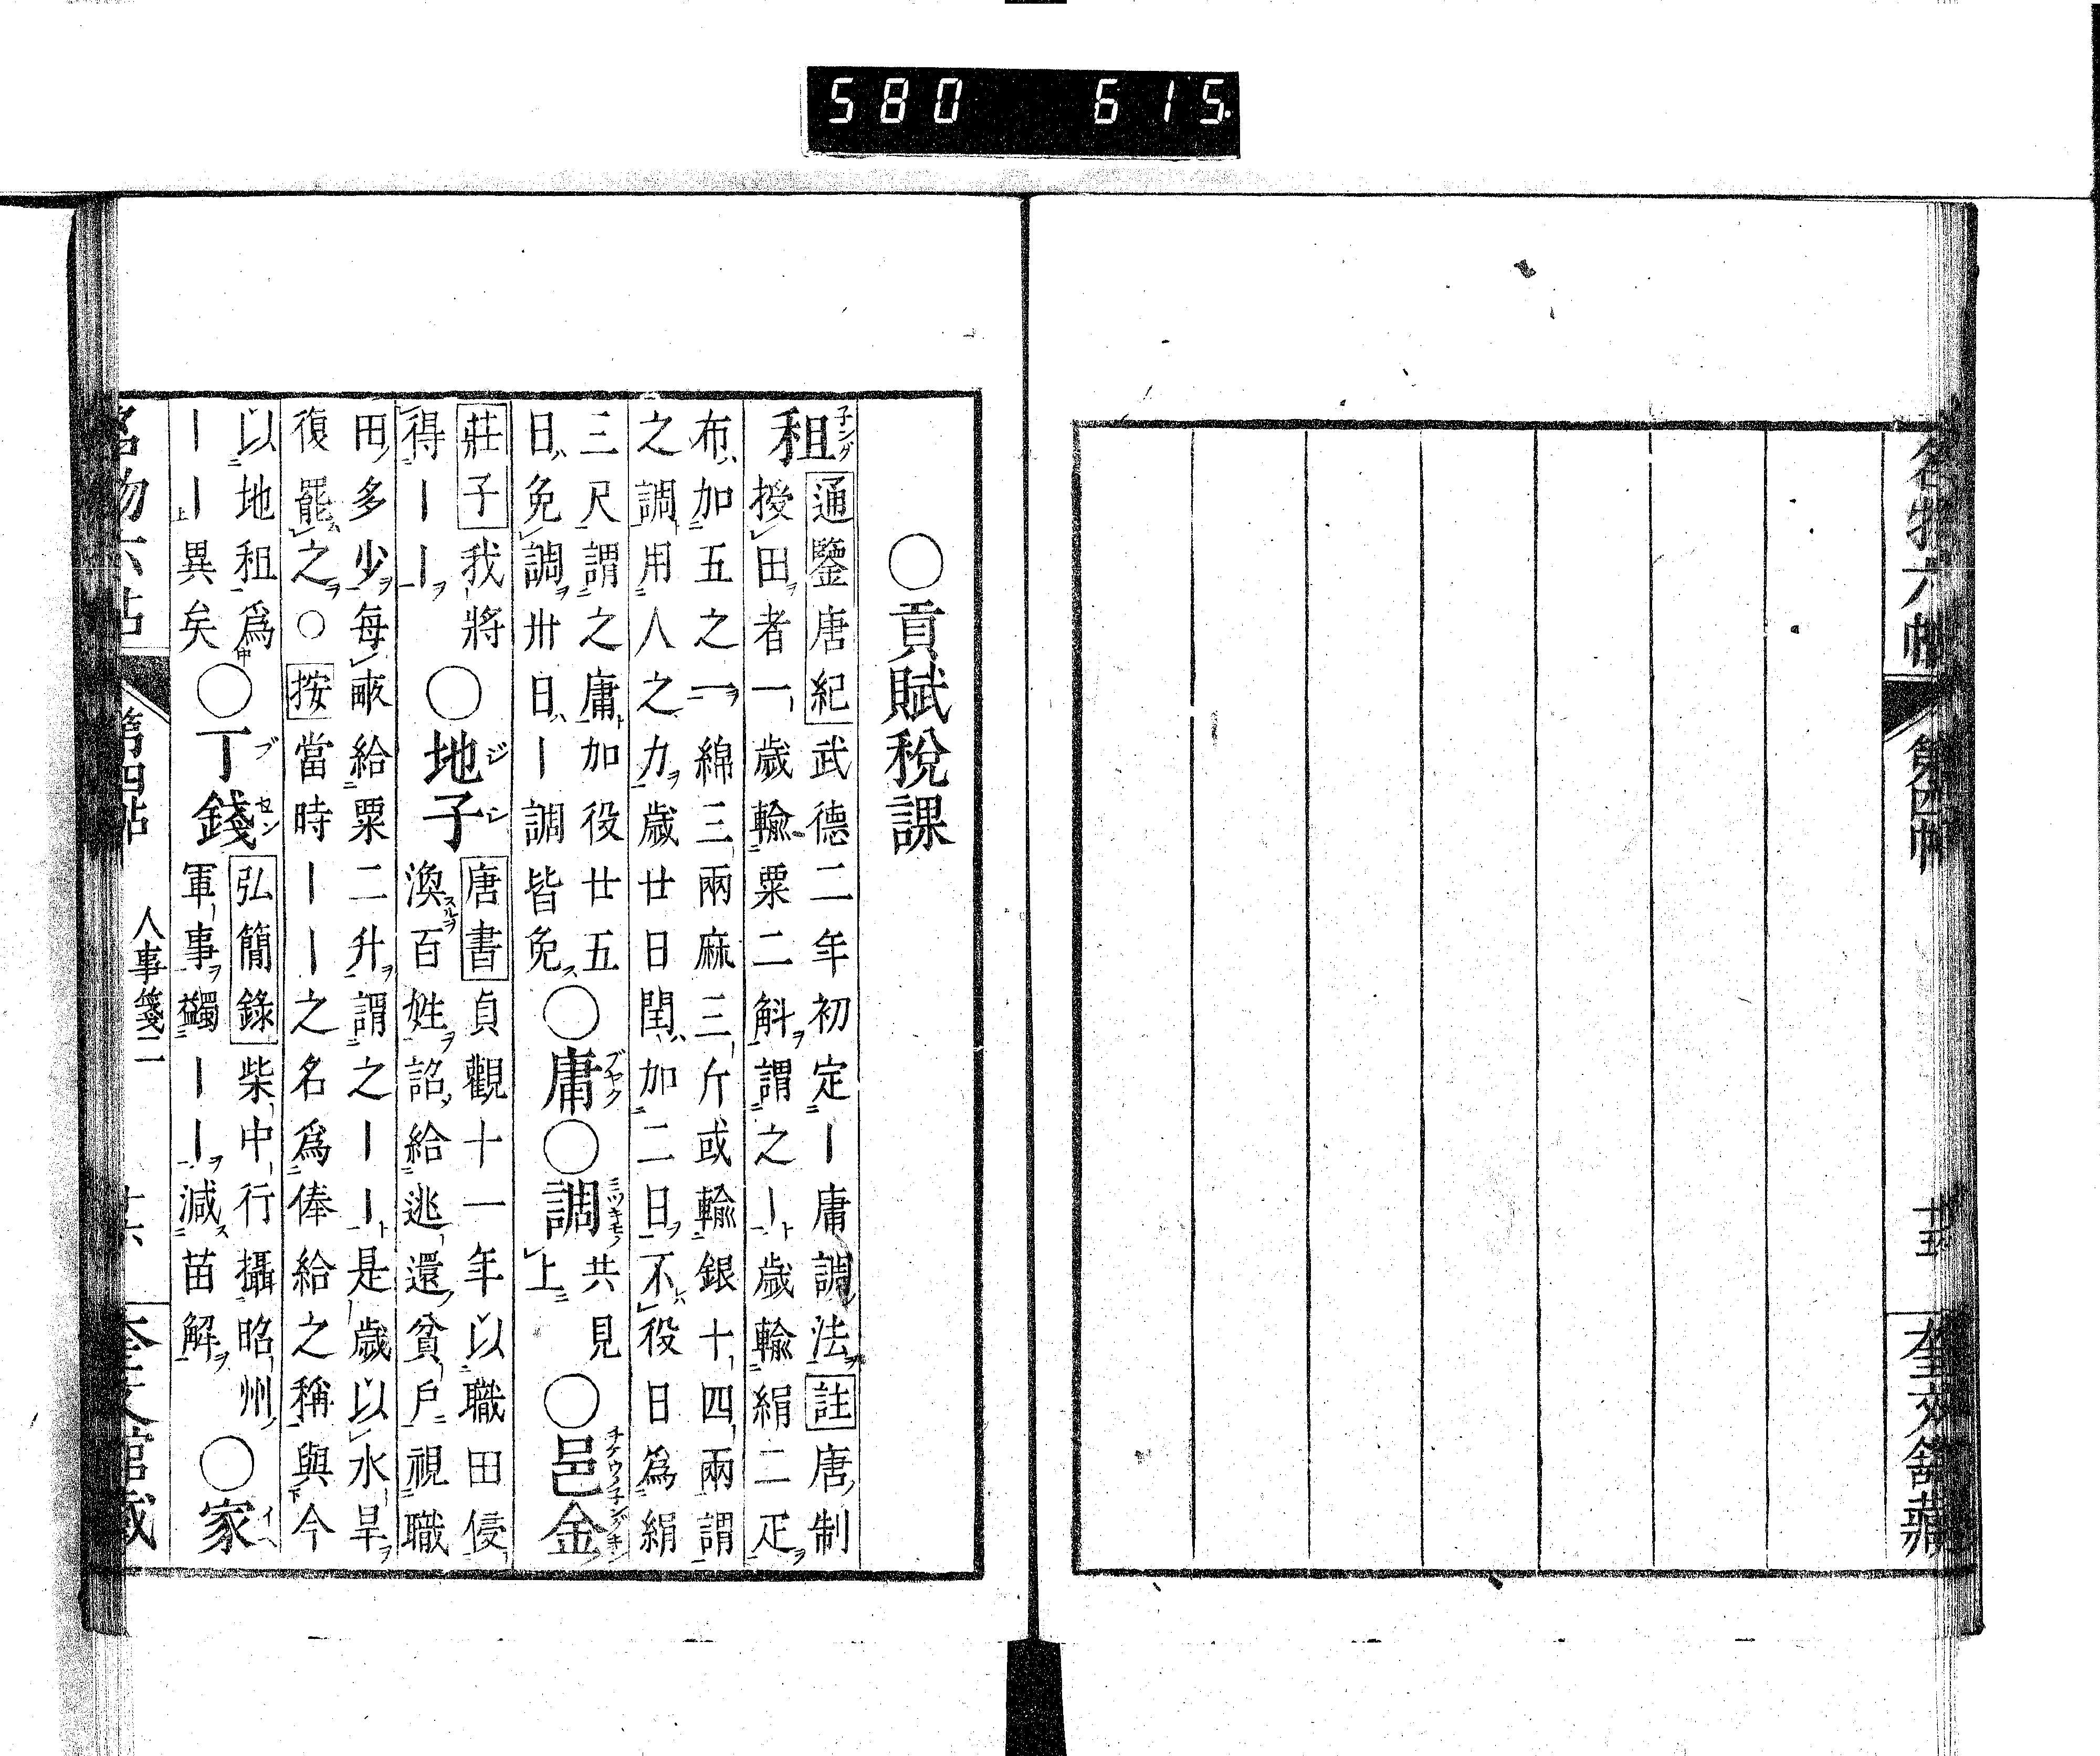 580 615.
名物六帖 第四帖 十五 奎文館藏
○貢賦稅課
租
通鑒唐紀武德二年初定｜庸調法註唐制
授田者一歲輸粟二斛謂之｜歲輸絹二疋
布加五之一綿三兩麻三斤或輸銀十四兩謂
之調用人之力歲廿日閏加二日不役日爲絹
三尺謂之庸加役廿五
日免調卅日｜調皆免
○庸○調
共見
上
○邑金
莊子我將
得｜｜
○地子
唐書貞觀十一年以職田侵
漁百姓詔給逃還貧戶視職
田多少每畝給粟二升謂之｜｜是歲以水旱
復罷之○按當時｜｜之名爲俸給之稱與今
以地租爲
｜｜異矣
○丁錢
弘簡錄柴中行攝昭州
軍事蠲｜｜減苗解
○家
名物六帖 第四帖 人事箋二 十六 奎文館藏